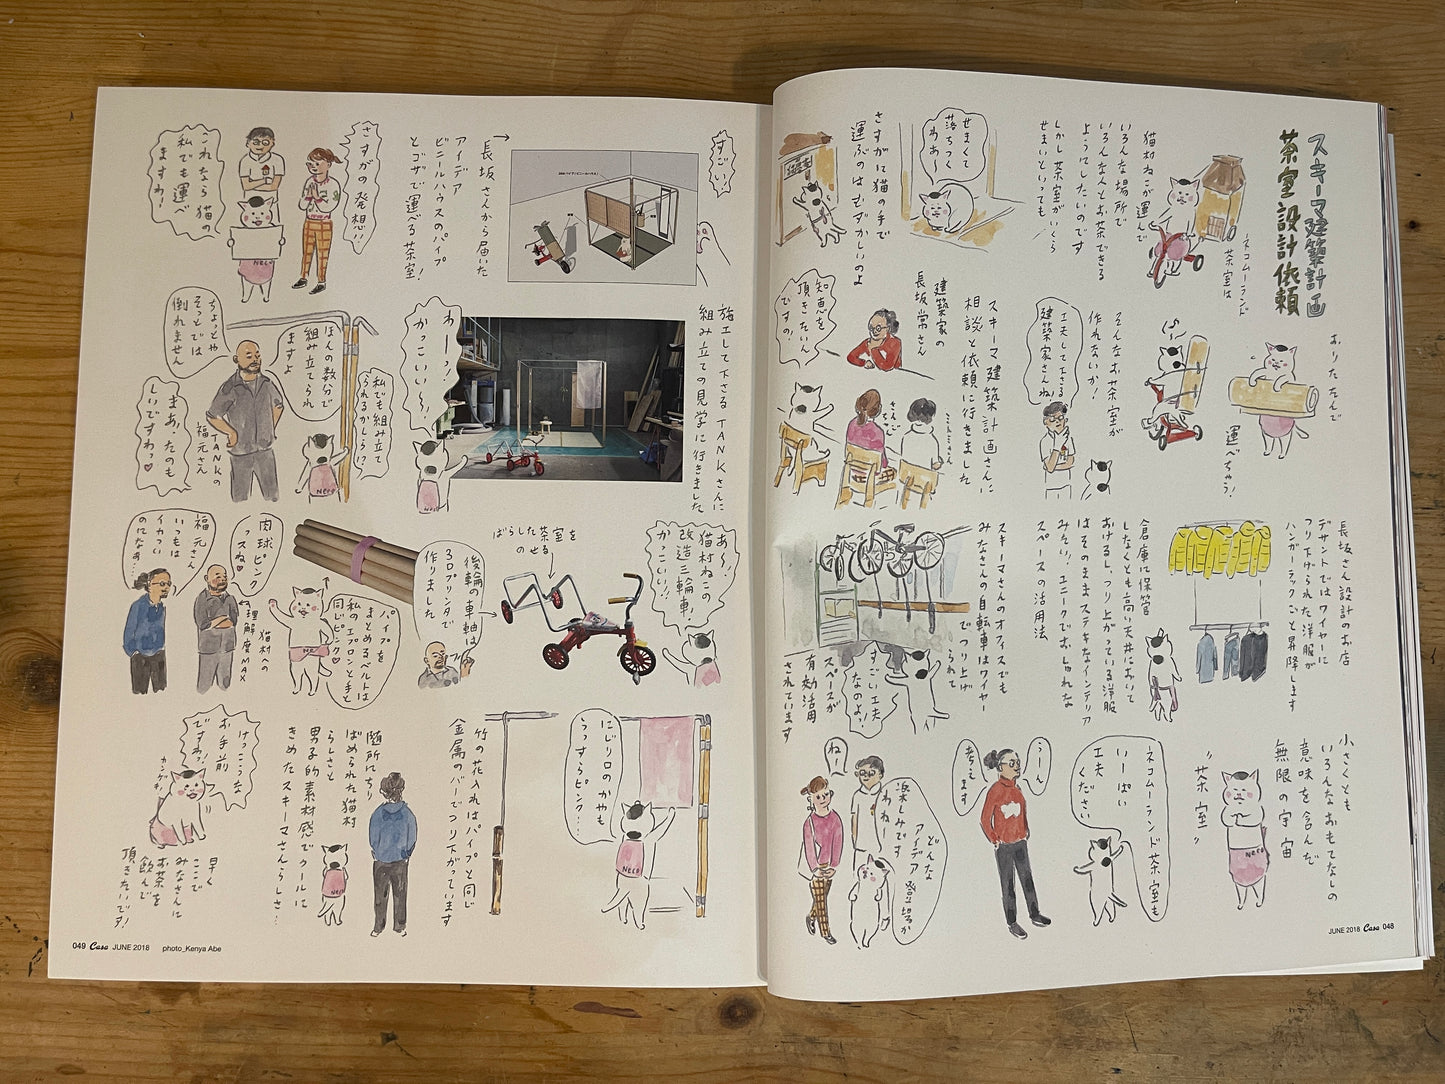 スキーマ建築計画
茶室設計依頼
ネコムーランド
茶室は
猫村ねこが運んで
いろんな場所で
いろんな人とお茶できる
ようにしたいのです
しかし茶室がいくら
せまいといっても
せまくて
落ちつく
わあ〜
さすがに猫の手で
運ぶのはむずかしいのよ
おりたたんで
運べちゃう!
そんなお茶室が
作れないか!
工夫して下さる
建築家さんね!
スキーマ建築計画さんに
相談と依頼に行きました
建築家の
長坂常さん
知恵を
頂きたいん
ですの!
長坂さん設計のお店
デサントではワイヤーに
つり下げられた洋服が
ハンガーラックごと昇降します
倉庫に保管
しなくとも高い天井において
おけるし、つり上がっている洋服
はそのままステキなインテリア
みたい!ユニークでおしゃれな
スペースの活用法
スキーマさんのオフィスでも
みなさんの自転車はワイヤー
でつり上げ
られて
スペースが
有効活用
されています
すごい工夫
なのよ!
小さくとも
いろんなおもてなしの
意味を含んだ
無限の宇宙
"茶室"
ネコムーランド茶室も
いーぱい
工夫
ください
うーん
考えます
どんな
アイデア登場か
楽しみです
わねー
ねー
JUNE 2018 Casa 048
すごい!
長坂さんから届いた
アイデア
ビニルハウスのパイプ
とゴザで運べる茶室!
さすがの発想!!
これなら猫の
私でも運べ
ますわ!
施工して下さるTANKさんに
組み立ての見学に行きました
わーっ!
かっこいい〜!
私でも組み立て
られるかしら!?
ほんの数分で
組み立てられ
ますよ
TANKの
福元さん
ちょっとや
そっとでは
倒れません
まあ、たのも
しいですわっ♡
あ〜!
猫村ねこの
改造三輪車!
かっこいい!!
ばらした茶室を
のせる
後輪の車軸は
3Dプリンタで
作りました
パイプを
まとめるベルトは
私のエプロンと手と
同じピンク♡
肉球ピンク
っスね
猫村への
理解度MAX
福元さん
いつもは
イカつい
のになぁ…
にじり口のかやも
うっすらピンク…
竹の花入れはパイプと同じ
金属のバーでつり下がっています
随所にちり
ばめられた猫村
らしさと
男子的素材感でクールに
きめたスキーマさんらしさ…
けっこうな
お手前
ですわ!
早く
ここで
みなさんに
お茶を
飲んで
頂きたいです!
049 Casa JUNE 2018 photo_Kenya Abe